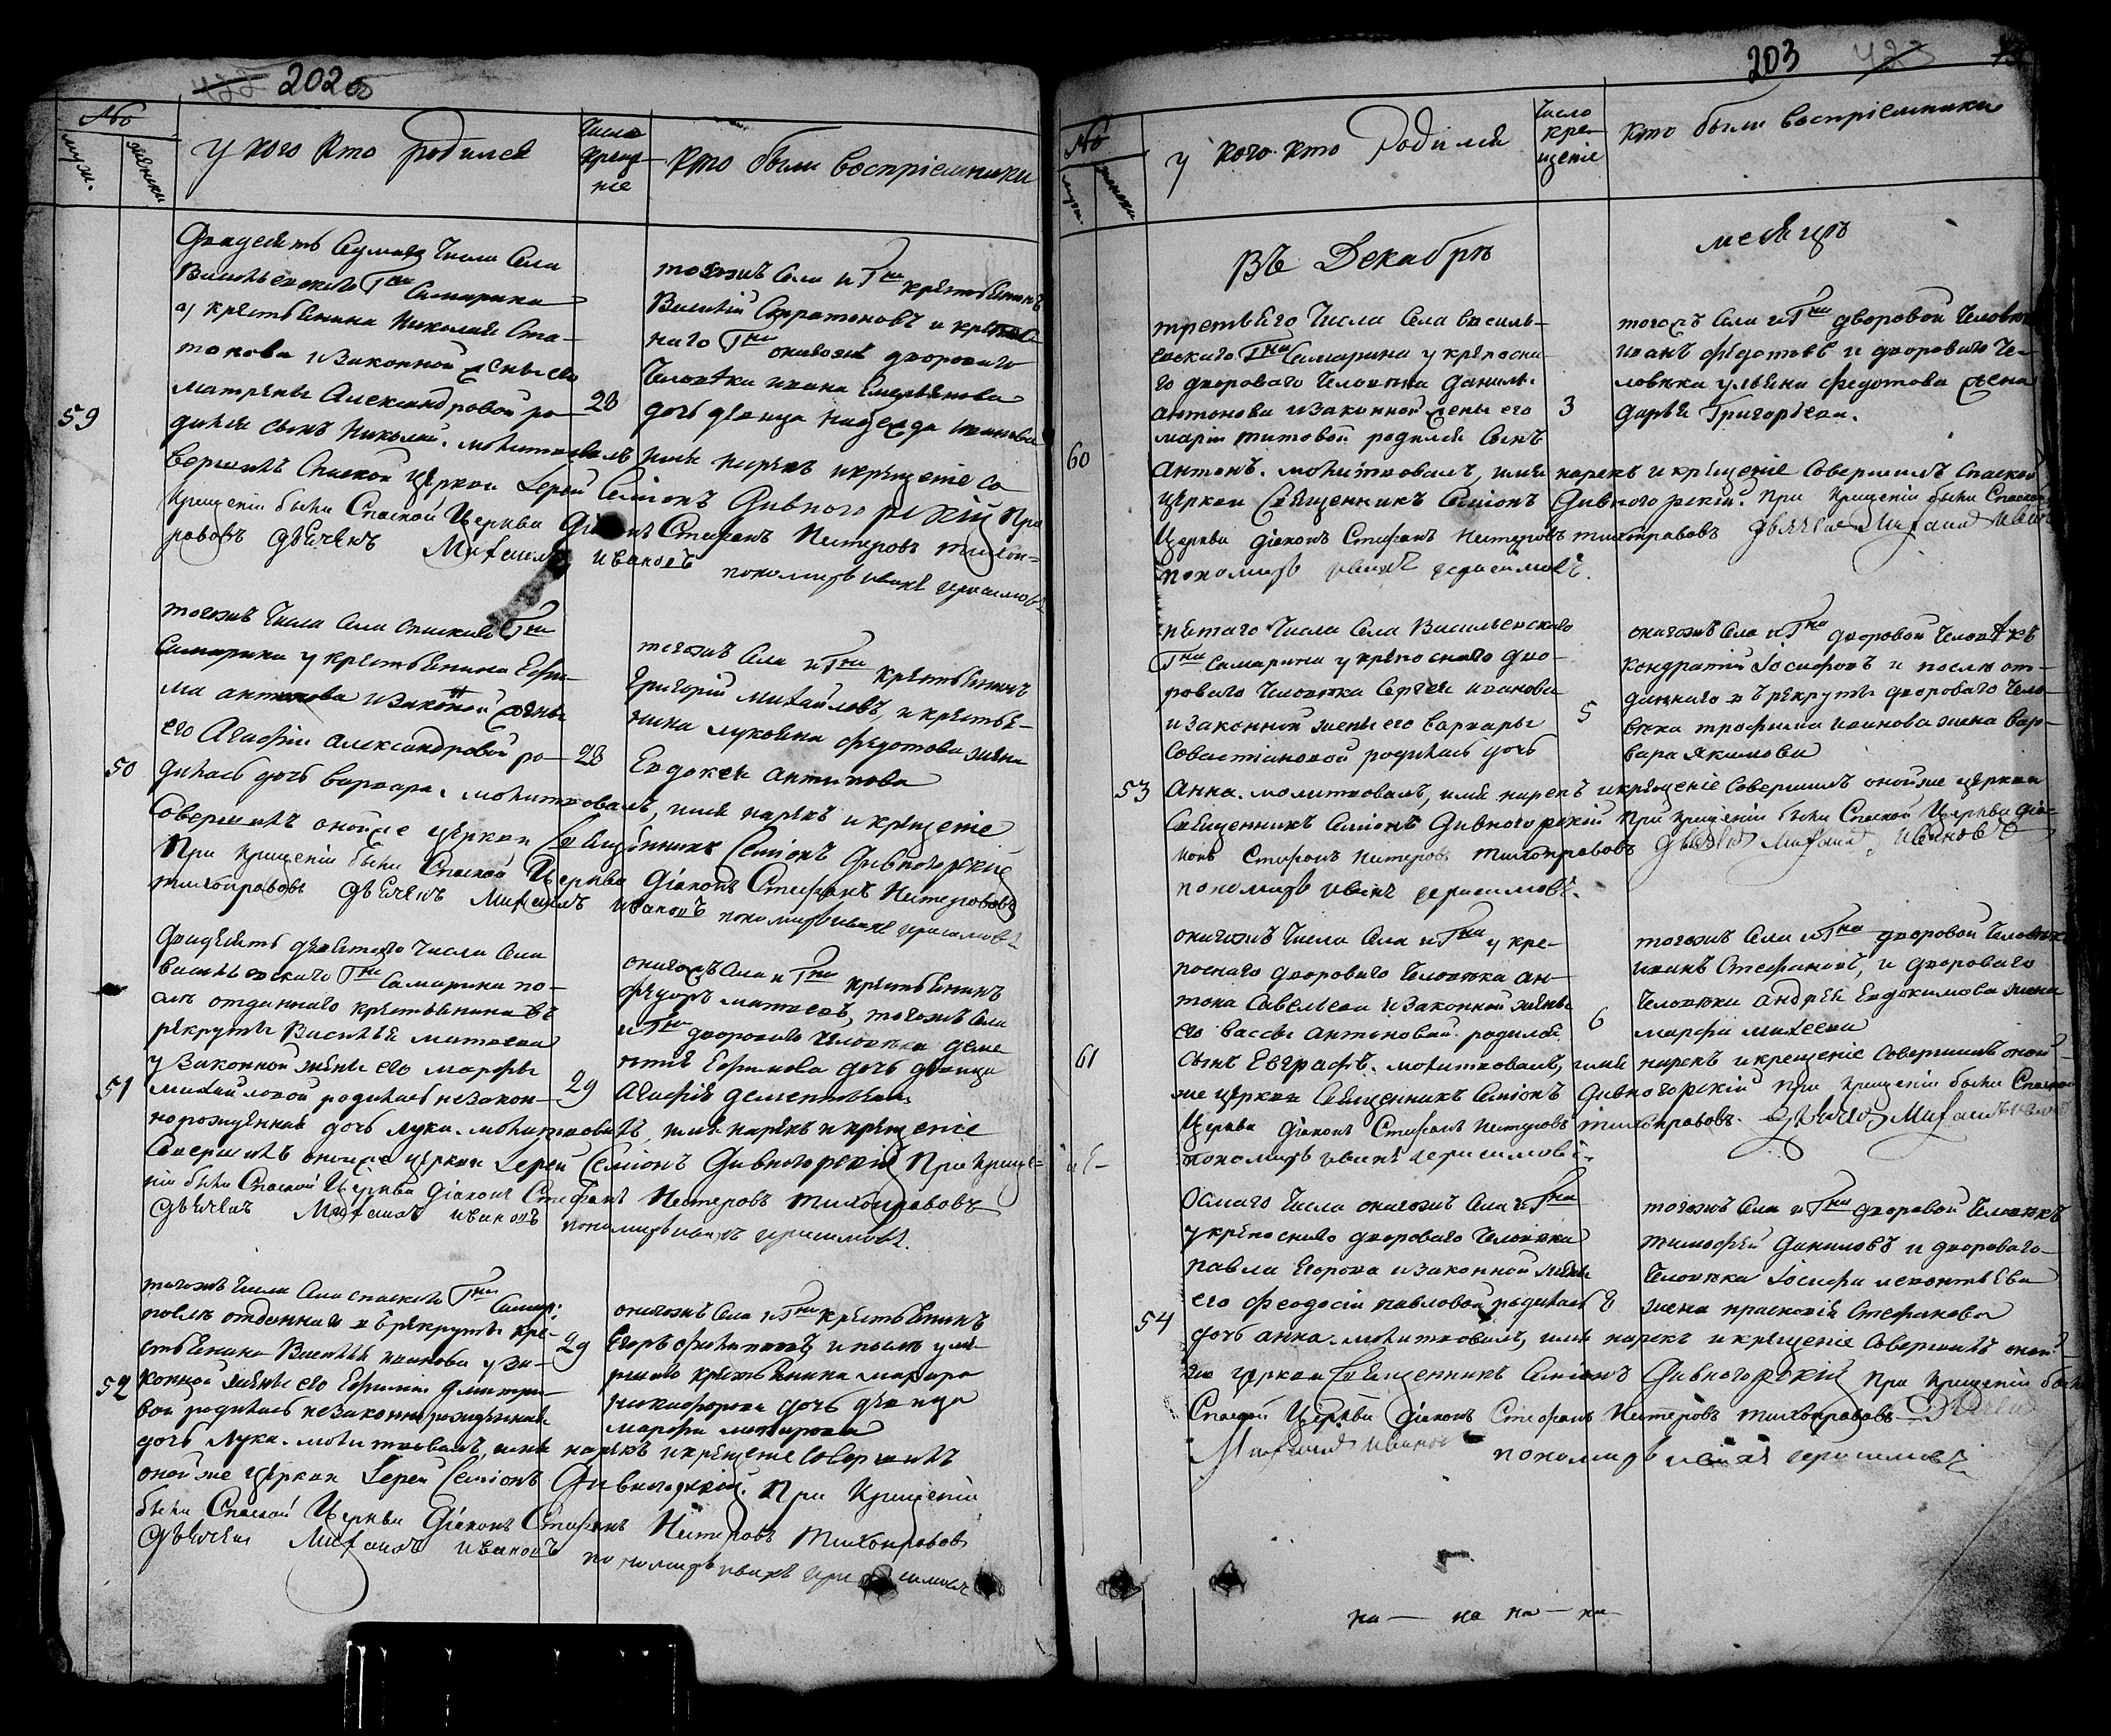 202об
№
мужи.
женски
У кого кто родился
Число
креще-
ніе
кто были воспріемники
59
Двадесять седмаго числа села
Васильевскаго Гна Самарина
у крестьянина Николая
и законной жены его
матрены Александровой ро-
дился сынъ Николай. молитвовалъ имя нарекъ и крещеніе со
вершилъ Спаской церкви Іерей Симіонъ Дивногорскій При
крещеніи были Спаской Церкви Діаконъ Стефанъ Нестеровъ тихон-
равовъ дьячекъ Михаилъ Ивановъ пономарь иванъ герасимовъ
28
тогожъ села и Гна крестьянинъ
Василій и
Гна онагожъ двороваго
человѣка ивана Емельянова
дочь девица надежда иванова
50
тогожъ числа села спаскаго Гна
Самарина у крестьянина Ефи-
ма антипова и законной жены
его Агафіи александровой ро-
дилась дочь варвара. молитвовалъ, имя нарекъ и крещеніе
Совершилъ оной же церкви Священникъ Симіонъ Дивногорскій
При крещеніи были Спаской Церкви діаконъ Стефанъ Нестеровъ
тихонравовъ дьячекъ Михаилъ ивановъ пономарь иванъ герасимовъ
28
тогожъ села и Гна крестьянинъ
Григорій михайловъ, и крестья-
нина лукояна федотова жена
Евдокея антипова
51
Двадесять девятаго числа села
васильевскаго Гна Самарина по-
слѣ отданнаго крестьянина въ
рекруты Василья матвеева
у законной жены его марфы
михайловой родилась незакон-
норожденная дочь лукія. молитвовалъ, имя нарекъ и крещеніе
Совершилъ оной же церкви Іерей Симіонъ Дивногорскій При креще-
ніи были Спаской Церкви діаконъ Стефанъ Нестеровъ Тихонравовъ
дьячекъ Михаилъ ивановъ пономарь иванъ герасимовъ.
29
онагожъ села и Гна крестьянинъ
федоръ матвеевъ, тогожъ села
и Гна двороваго человѣка деме
нтія Ефимова дочь девица
Агафія дементьева.
52
тогожъ числа села спаскаго Гна Самар:
послѣ отданнаго въ рекруты кре-
стьянина Василья иванова у за-
конной жены его Ефиміи дмитріе-
вой родилась незаконнорожденная
дочь Лукія. молитвовалъ, имя нарекъ и крещеніе совершилъ
оной же церкви Іерей Симіонъ Дивногорскій. При Крещеніи
были Спаской Церкви Діаконъ Стефанъ Нестеровъ Тихонравовъ
дьячекъ Михаилъ ивановъ пономарь иванъ герасимовъ
29
онагожъ села и Гна крестьянинъ
Егоръ и послѣ уме-
ршаго крестьянина макара
никифорова дочь девица
марфа макарова
203
№
мужи.
женски
У кого кто Родился
Число
кре-
щеніе
кто были воспріемники
Въ Декабрѣ
месяцѣ
60
третьяго числа села василь-
евскаго Гна Самарина у крепосна
го двороваго человѣка данилы
антонова и законной жены его
маріи титовой родился сынъ
Антонъ. молитвовалъ, имя нарекъ и крещеніе совершилъ спаской
церкви Священникъ Симіонъ Дивногорскій. При крещеніи были Спаской
Церкви діаконъ Стефанъ Нестеровъ тихонравовъ дьячекъ Михаилъ Ивановъ
пономарь иванъ герасимовъ.
3
тогожъ села и Гна дворовой человѣкъ
иванъ федотовъ и двороваго че-
ловѣка ульяна федотова жена
дарья Григорьева.
53
пятаго числа села Васильевскаго
Гна Самарина у крепоснаго дво-
роваго человѣка Сергея иванова
и законной жены его варвары
Севастіановой родилась дочь
Анна. молитвовалъ, имя нарекъ и крещеніе совершилъ оной же церкви
Священникъ Симіонъ Дивногорскій При крещеніи были Спаской Церкви діа-
конъ Стефанъ Нестеровъ Тихонравовъ дьячекъ Михаилъ Ивановъ
пономарь иванъ герасимовъ.
5
онагожъ села и Гна дворовой человѣкъ
Кондратій Іосифовъ и послѣ от-
даннаго въ рекруты двороваго чело-
вѣка трофима иванова жена вар-
вара Якимова
61
онагожъ числа села и Гна у кре-
поснаго двороваго человѣка ан-
тона Савельева и законной жены
его вассы антоновой родился
сынъ Евграфъ. молитвовалъ, имя нарекъ и крещеніе совершилъ оной
же церкви Священникъ Симіонъ Дивногорскій При крещеніи были Спаской
Церкви діаконъ Стефанъ Нестеровъ тихонравовъ. дьячекъ Михаилъ Ивановъ
пономарь иванъ герасимовъ.
6
тогожъ села и Гна дворовой человѣкъ
иванъ Стефановъ, и двороваго
человѣка андрея Евдокимова жена
марфа михеева
54
Осмаго числа онагожъ села и Гна
у крепоснаго двороваго человѣка
павла Егорова и законной жены
его феодосіи павловой родилась
дочь анна. молитвовалъ, имя нарекъ и крещеніе совершилъ оной
же церкви Священникъ Симіонъ Дивногорскій При крещеніи были
Спаской Церкви діаконъ Стефанъ Нестеровъ тихонравовъ дьячекъ
Михаилъ Ивановъ пономарь иванъ герасимовъ
8
тогожъ села и Гна дворовой человѣкъ
тимофей даниловъ и двороваго
человѣка Іосифа леонтьева
жена прасковія Стефанова
на — на на — на